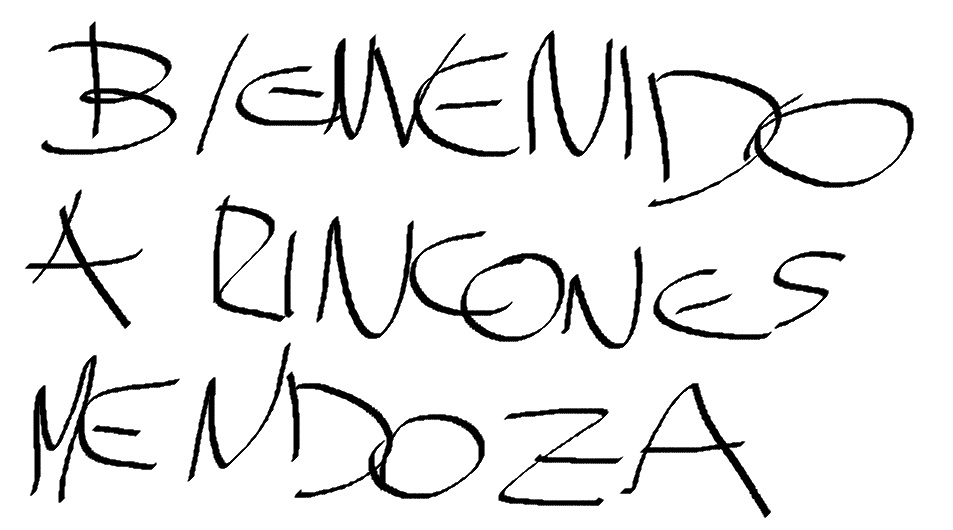 BIENVENIDO
A RINCONES
MENDOZA